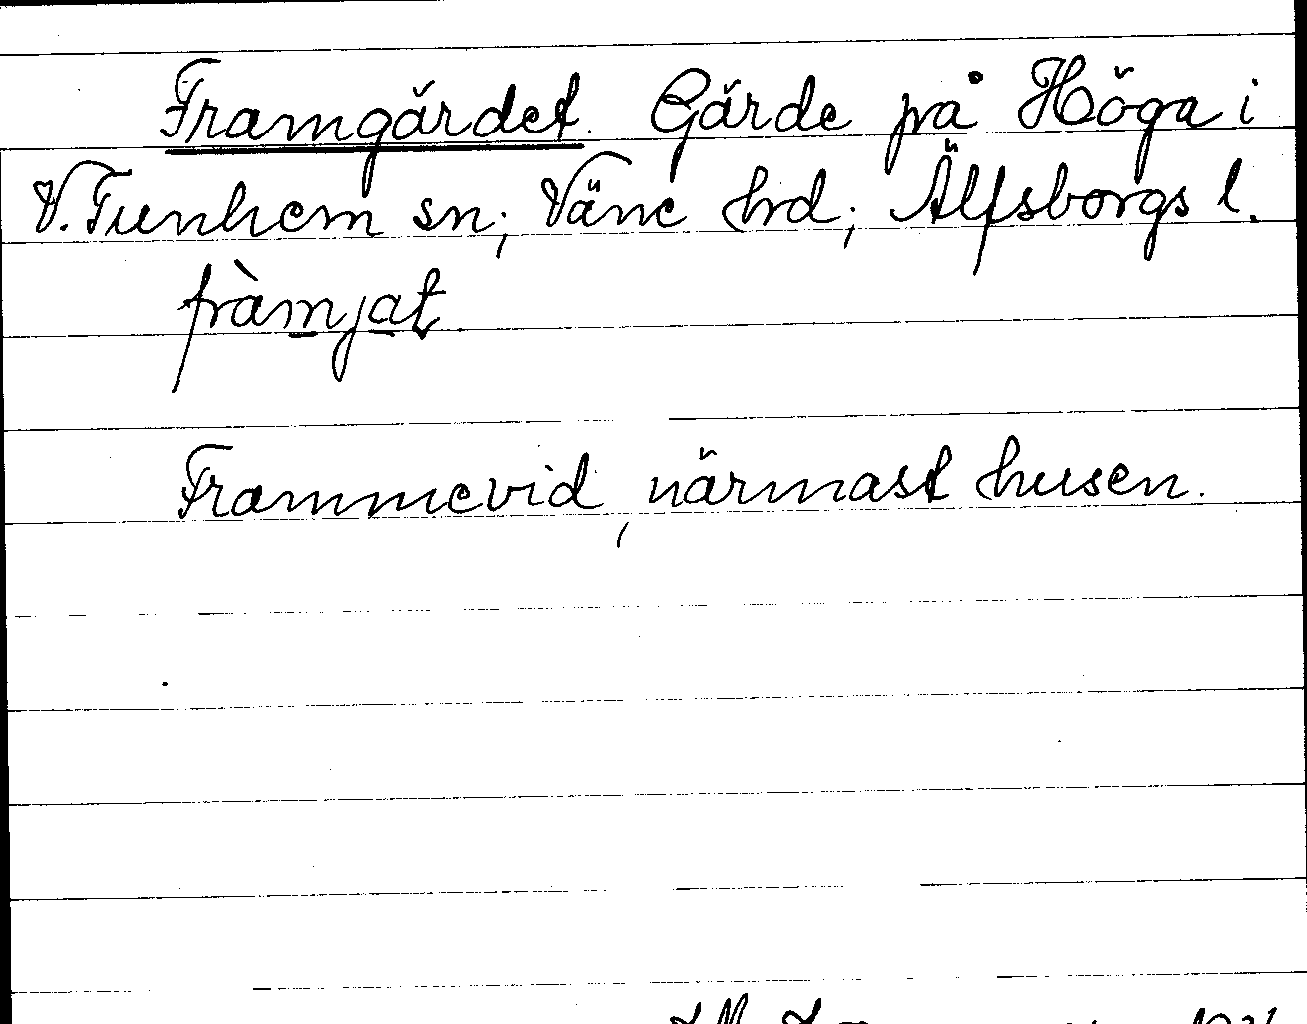 Framgärdet. Gärde på Höga i
V. Tunhem sn; Väne hrd; Älfsborgs l.
fràmjat
Frammevid, närmast husen.